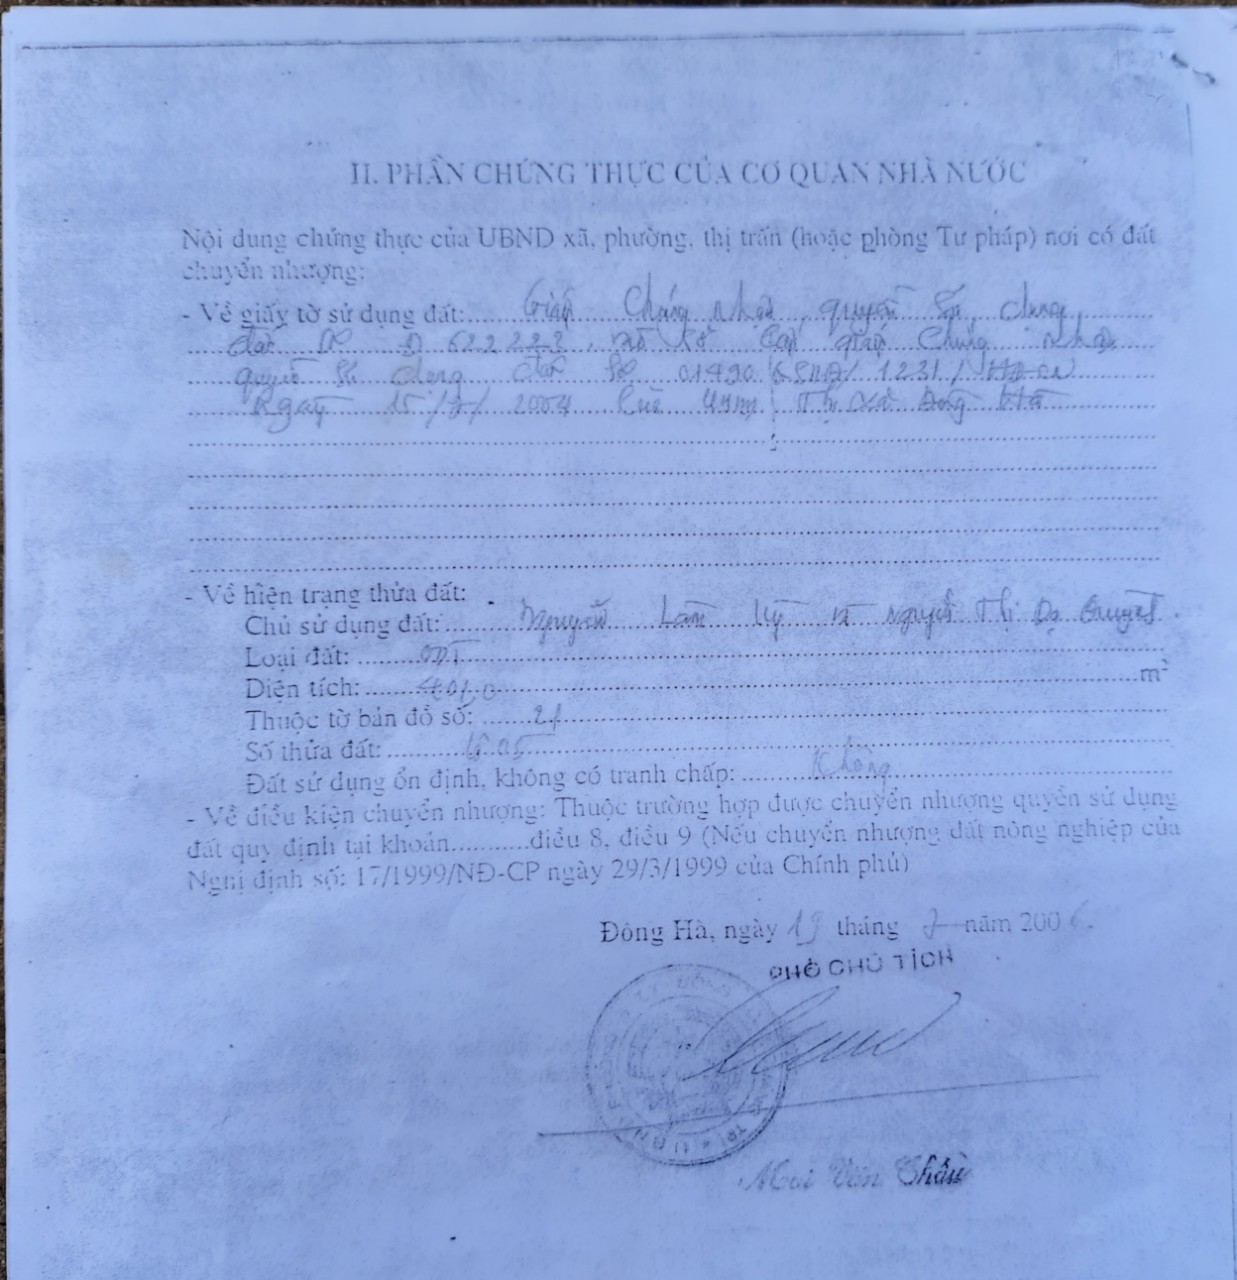 II. PHẦN CHỨNG THỰC CỦA CƠ QUAN NHÀ NƯỚC
Nội dung chứng thực của UBND xã, phường, thị trấn (hoặc phòng Tư pháp) nơi có đất
chuyển nhượng:
- Về giấy tờ sử dụng đất: Giấy Chứng nhận quyền sử dụng
đất số 622222, giấy chứng nhận
quyền sử dụng đất số 01490 QSDĐ/1231/
Ngày 15/7/2004 của UBND Thị xã Đông Hà
- Về hiện trạng thửa đất:
Chủ sử dụng đất: Nguyễn và Nguyễn Thị Quyết
Loại đất: ODT
Diện tích: 401,0 m²
Thuộc tờ bản đồ số: 21
Số thửa đất:
Đất sử dụng ổn định, không có tranh chấp: Không
- Về điều kiện chuyển nhượng: Thuộc trường hợp được chuyển nhượng quyền sử dụng
đất quy định tại khoản...........điều 8, điều 9 (Nếu chuyển nhượng đất nông nghiệp của
Nghị định số: 17/1999/NĐ-CP ngày 29/3/1999 của Chính phủ)
Đông Hà, ngày 19 tháng 7 năm 2006
PHÓ CHỦ TỊCH
Mai Văn